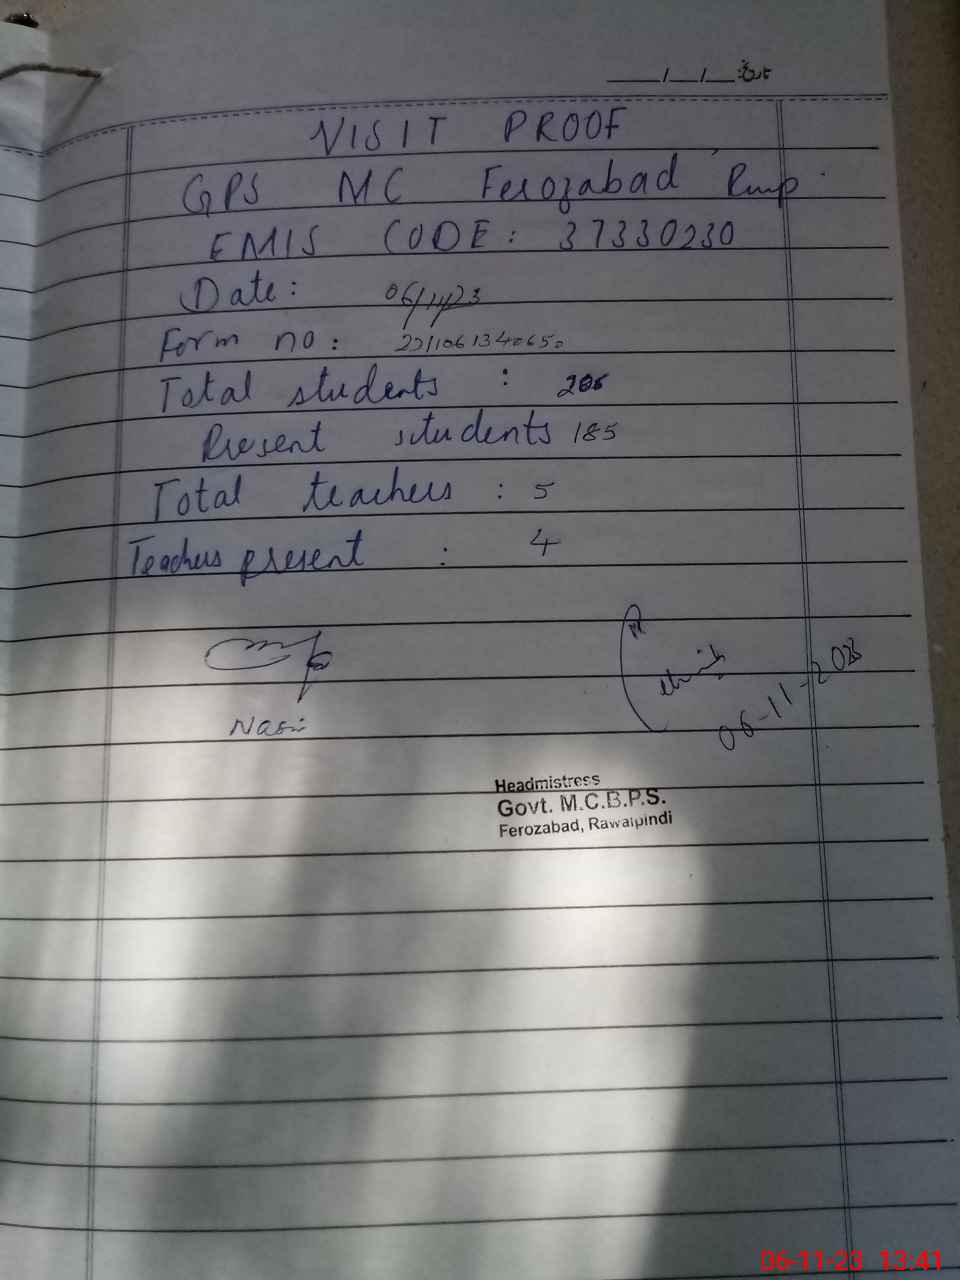 __/__/__ تاریخ
VISIT PROOF
GPS MC Ferozabad Rwp.
EMIS CODE: 37330230
Date: 06/11/23
Form no: 231106134065
Total students : 206
Present students 185
Total teachers : 5
Teachers present : 4
Nasir
06-11-2023
Headmistress
Govt. M.C.B.P.S.
Ferozabad, Rawalpindi
06-11-23 13:41